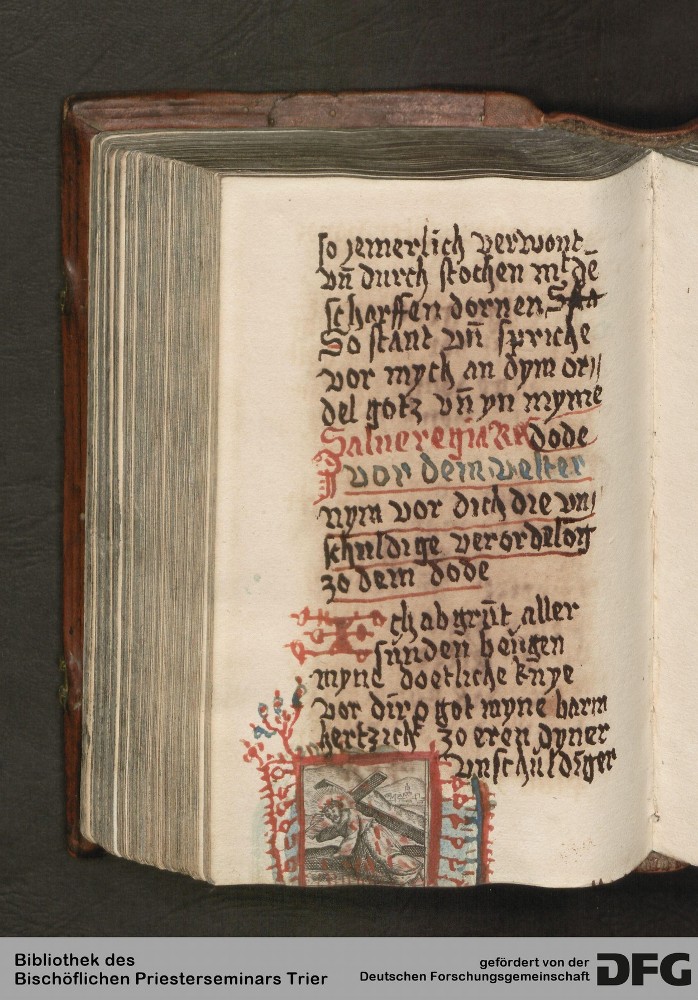 so jemerlich verwont
vn̄ durch stochen mt dē
scharffen dornen
So stant vn̄ spriche
vor mych an dym or//
del gotz vn̄ yn myme
Salue regia dode
vor dem velter
nym vor dich die vn/
schuldige verordelōg
zo dem dode
Ich abgrūt aller
sunden beugen
myne doetliche knye
vor dir o got myne barm
hertzich zo eren dyner
vnschuldiger
Bibliothek des
Bischöflichen Priesterseminars Trier
gefördert von der
Deutschen Forschungsgemeinschaft
DFG